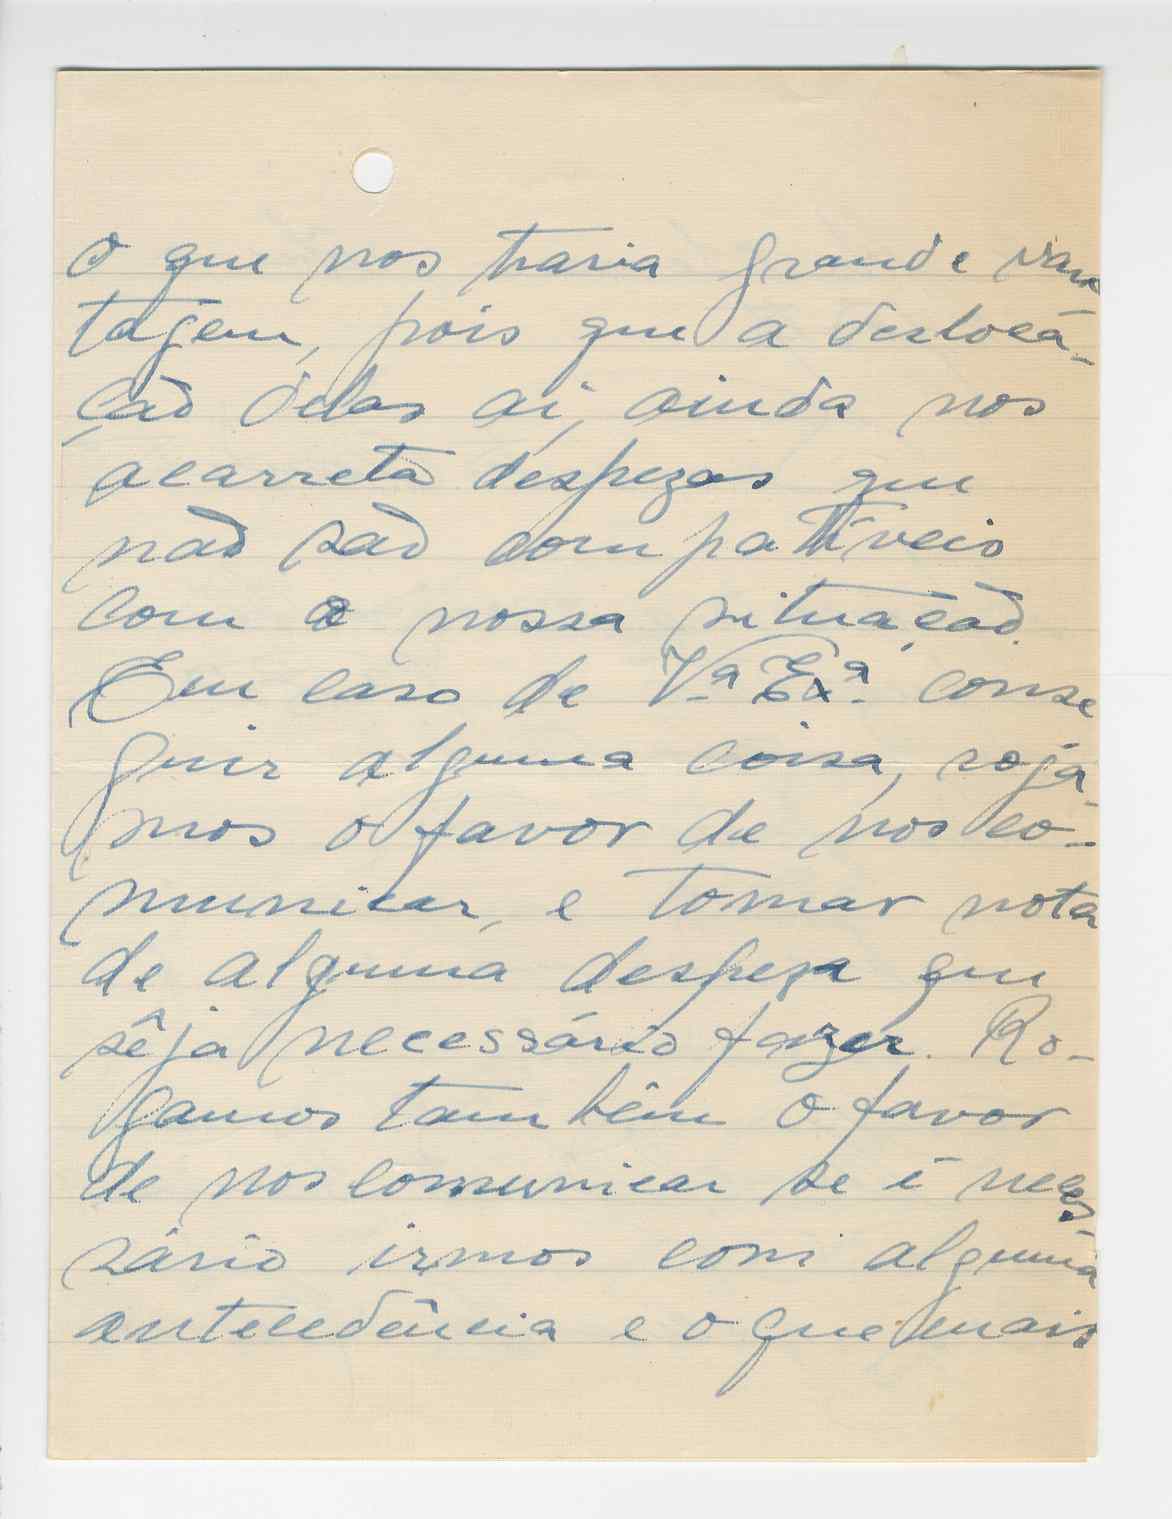 O que nos traria grande van
tagem, pois que a desloca-
ção delas aí, ainda nos
acarreta despezas que
não são compatíveis
com a nossa situação.
Em caso de Vª Exª. conse
guir alguma coisa, roga-
mos o favor de nos co-
municar, e tomar nota
de alguma despeza que
sêja necessário fazer. Ro-
gamos tambêm o favor
de nos comunicar se é neces
sário irmos com alguma
antecedência e o que mais